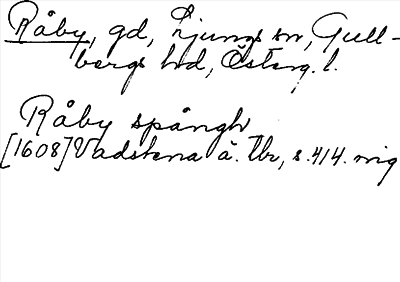 Råby, gd, Ljungs sn, Gull-
bergs hd, Österg. l.
Råby spångh
[1608] Vadstena ä. Tb, s. 414. mig